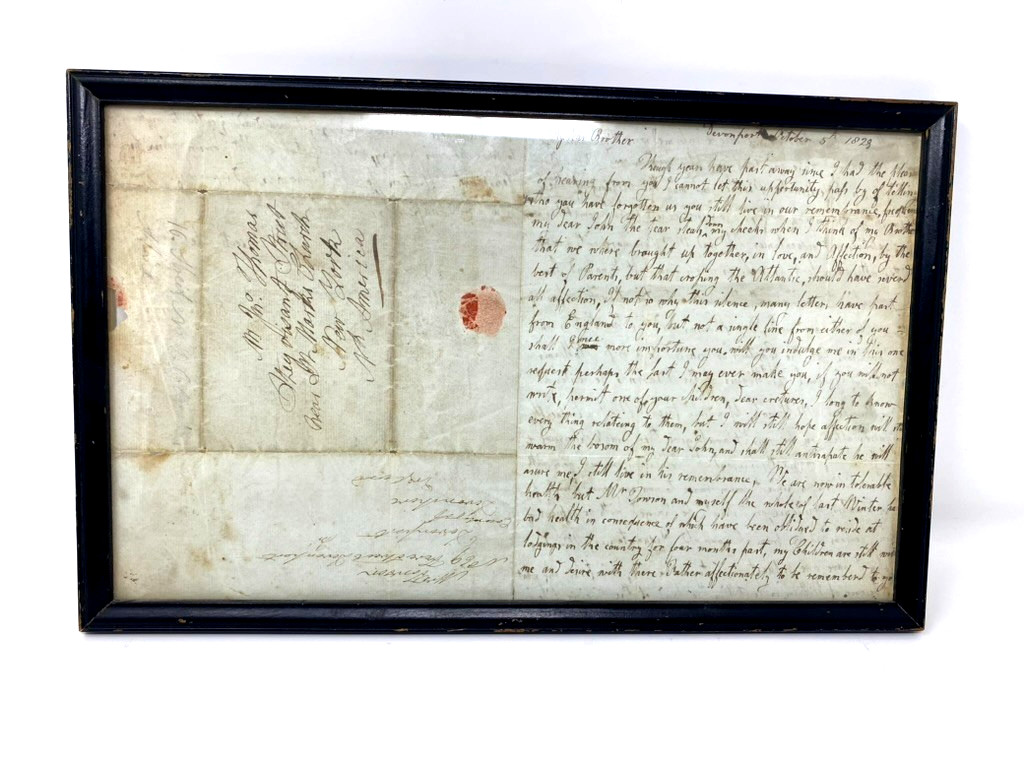 Mr Jno. Thomas
Stuyvesant Street
St Marks Church
New York
Nh America
Devonport October 5th 1823
Brother
Though years have past away since I had the pleas
of hearing from you I cannot let this opportunity pass by of tellin
who you have forgotten us you still live in our remembrance, frequen
my dear John the tear steals from my cheeks when I think of my Brother
that we where brought up together, in love, and Affection, by the
best of Parents, but that crossing the Atlantic, should have
all affection, if not so why this silence, many letters have past
from England to you, but not a single line from either of you
shall I once more importune you, will you indulge me in this one
request perhaps the last I may ever make you, if you will not
write, permit one of your Children, dear cretures, I long to know
every thing relateing to them, but I will still hope affection will
warm the bosom of my dear John, and shall still anticipate he will
assure me, I still live in his remembrance, We are now in tolerable
health, but Mr Towson and myself the whole of last Winter,
bad health in consequence of which have been oblidged to reside at
lodgings in the country for four months past, my Children are still
me and desire with there Father affectionately to be rememberd to
Mrs Towson
No 19
Devonport
Devonshire
England